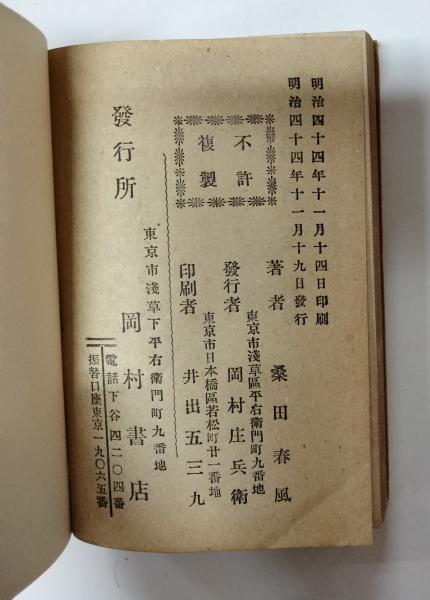 明治四十四年十一月十四日印刷
明治四十四年十一月十九日發行
不許
複製
著者 桑田春風
東京市淺草區平右衛門町九番地
發行者 岡村庄兵衛
東京市日本橋區若松町廿一番地
印刷者 井出五三九
東京市淺草下平右衛門町九番地
發行所 岡村書店
電話下谷四二〇四番
振替口座東京一九〇六五番